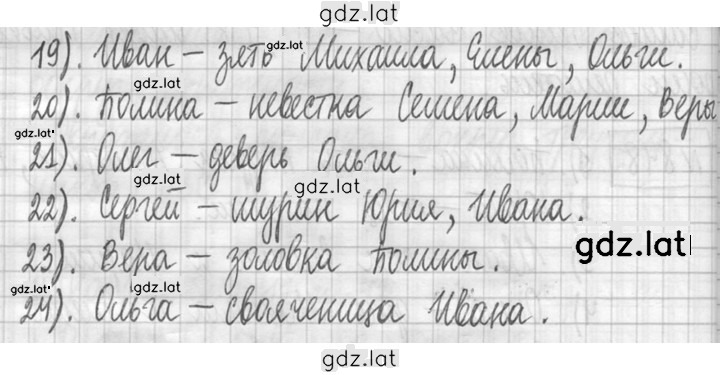 gdz.lat
19). Иван – зять Михаила, Елены, Ольги.
gdz.lat
gdz.lat
20). Полина – невестка Семена, Марии, Веры
gdz.lat
gdz.lat
21). Олег – деверь Ольги.
gdz.lat
gdz.lat
22). Сергей – шурин Юрия, Ивана.
gdz.lat
23). Вера – золовка Полины.
gdz.lat
gdz.lat
24). Ольга – свояченица Ивана.
gdz.lat